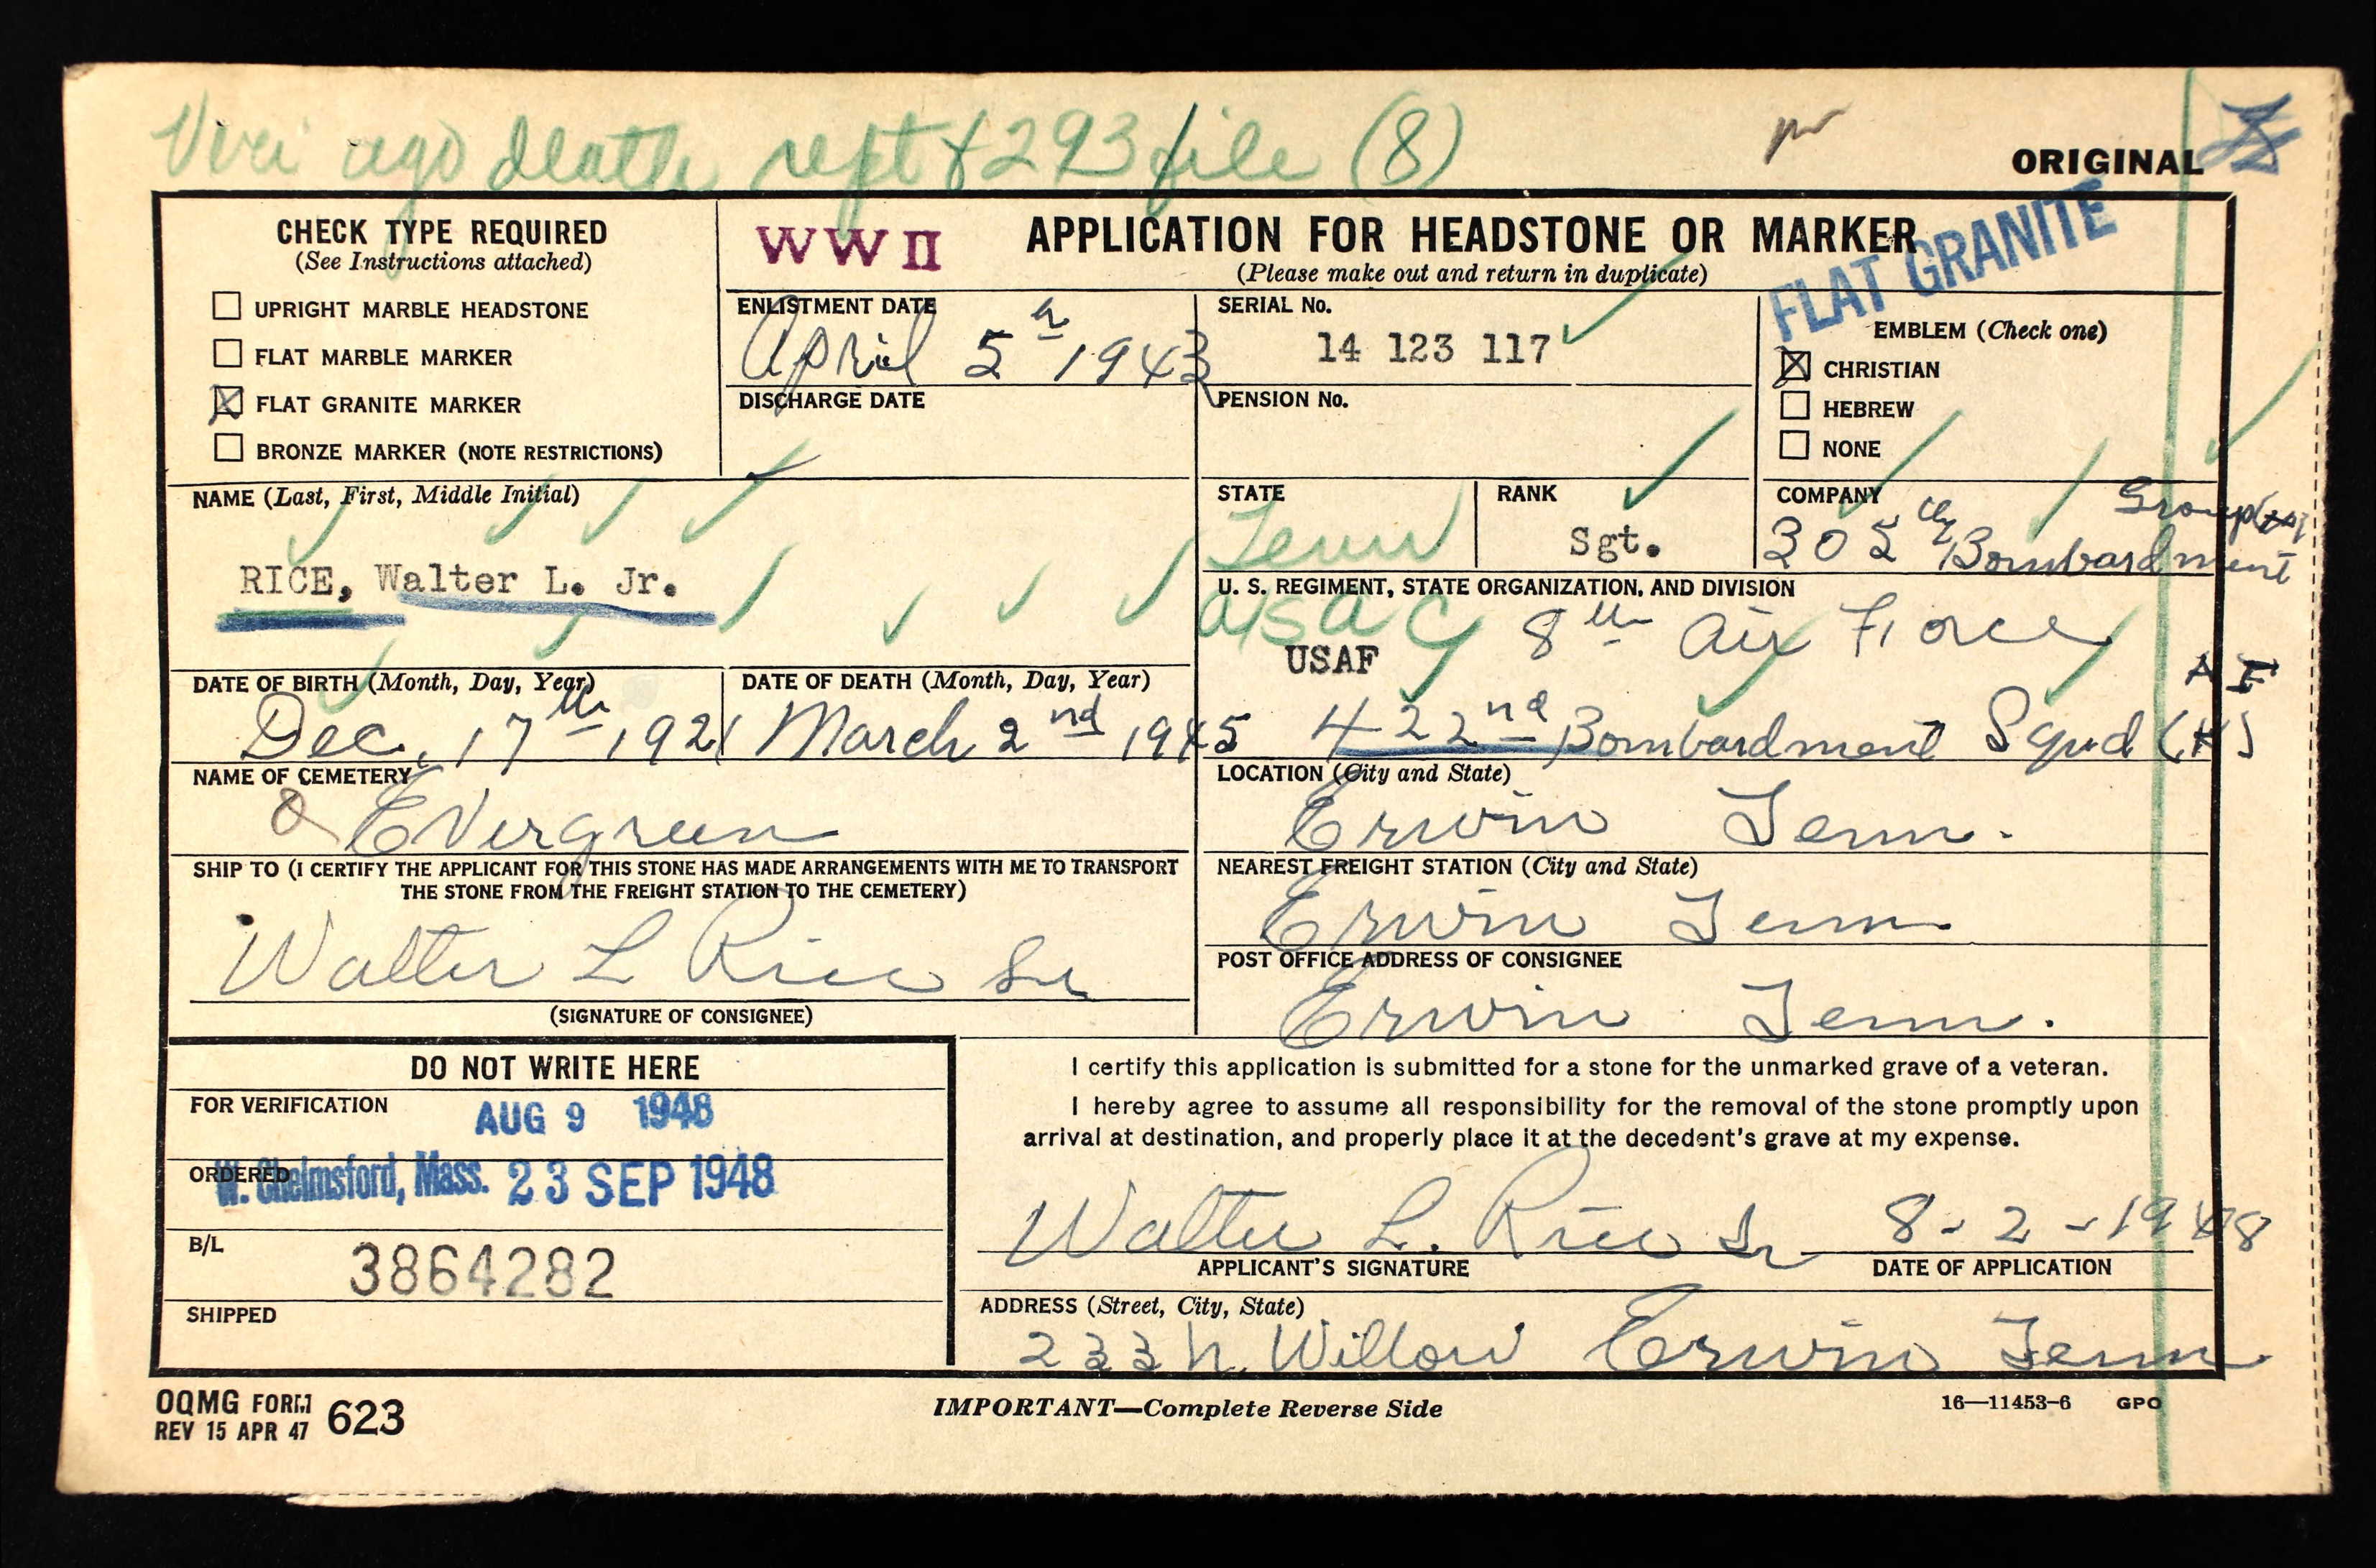 Veri ago death rept & 293 file (8)
ORIGINAL
CHECK TYPE REQUIRED
(See Instructions attached)
UPRIGHT MARBLE HEADSTONE
FLAT MARBLE MARKER
FLAT GRANITE MARKER
BRONZE MARKER (NOTE RESTRICTIONS)
WW II
APPLICATION FOR HEADSTONE OR MARKER
(Please make out and return in duplicate)
FLAT GRANITE
ENLISTMENT DATE
April 5th 1943
DISCHARGE DATE
SERIAL No.
14 123 117
PENSION No.
EMBLEM (Check one)
CHRISTIAN
HEBREW
NONE
NAME (Last, First, Middle Initial)
RICE, Walter L. Jr.
STATE
Tenn
RANK
Sgt.
COMPANY
Group (H)
305th Bombardment
U. S. REGIMENT, STATE ORGANIZATION, AND DIVISION
8th Air Force
USAF
AF
422nd Bombardment Squd (H)
DATE OF BIRTH (Month, Day, Year)
Dec. 17th 1921
DATE OF DEATH (Month, Day, Year)
March 2nd 1945
NAME OF CEMETERY
Evergreen
LOCATION (City and State)
Erwin Tenn.
SHIP TO (I CERTIFY THE APPLICANT FOR THIS STONE HAS MADE ARRANGEMENTS WITH ME TO TRANSPORT
THE STONE FROM THE FREIGHT STATION TO THE CEMETERY)
Walter L Rice Sr
(SIGNATURE OF CONSIGNEE)
NEAREST FREIGHT STATION (City and State)
Erwin Tenn
POST OFFICE ADDRESS OF CONSIGNEE
Erwin Tenn.
DO NOT WRITE HERE
FOR VERIFICATION
AUG 9 1948
ORDERED
W. Chelmsford, Mass. 23 SEP 1948
B/L
3864282
SHIPPED
I certify this application is submitted for a stone for the unmarked grave of a veteran.
I hereby agree to assume all responsibility for the removal of the stone promptly upon
arrival at destination, and properly place it at the decedent's grave at my expense.
Walter L. Rice Sr 8-2-1948
APPLICANT'S SIGNATURE
DATE OF APPLICATION
ADDRESS (Street, City, State)
233 N. Willow Erwin Tenn
OQMG FORM 623
REV 15 APR 47
IMPORTANT—Complete Reverse Side
16—11453-6 GPO